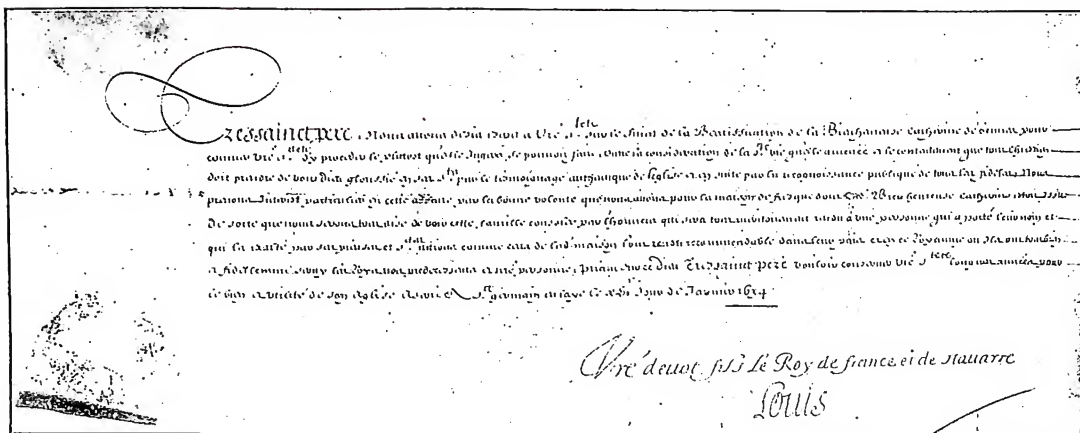 Tressainct pere. Nous auons desia escrit a Vre S.teté sur le suiet de la Beatiffication de la Bienheureuse Catherine de pour
conuier Vre S.teté d'y proceder le plutost qu'elle Jugera se pouuoir faire, la consideration de la S.te vie qu'elle a menée et le contentement que tout Chrestien
doit prendre de voir dieu glorifié en ses S.ts par le témoignage authentique de l'eglise et en suite par la recognoissance publique de tous les fideles. Nous
prenons Interest particulier en cette affaire, pour la bonne volonté que nous auons pour la maison de fiesque dont Bien heureuse Catherine estoit Issüe
De sorte que nous serons tout aise de voir cette famille consolée par l'honneur qui sera tout rendu à vne personne qui a porté leur nom et
qui l'a exalté par ses prieres et S.tes actions comme ceux de lad. maison se sont rendus recommendables dans leur et en ce Royaume ou Ils ont
et fidellement seruy les Roys nos predecesseurs et nre personne, priant sur ce dieu Tressainct pere vouloir conseruer Vre S.teté longues années pour
le bien et vtilité de son eglise. A S.t germain en Laye le Jour de Januier 1634
Vre deuot fils Le Roy de france et de Nauarre
Louis